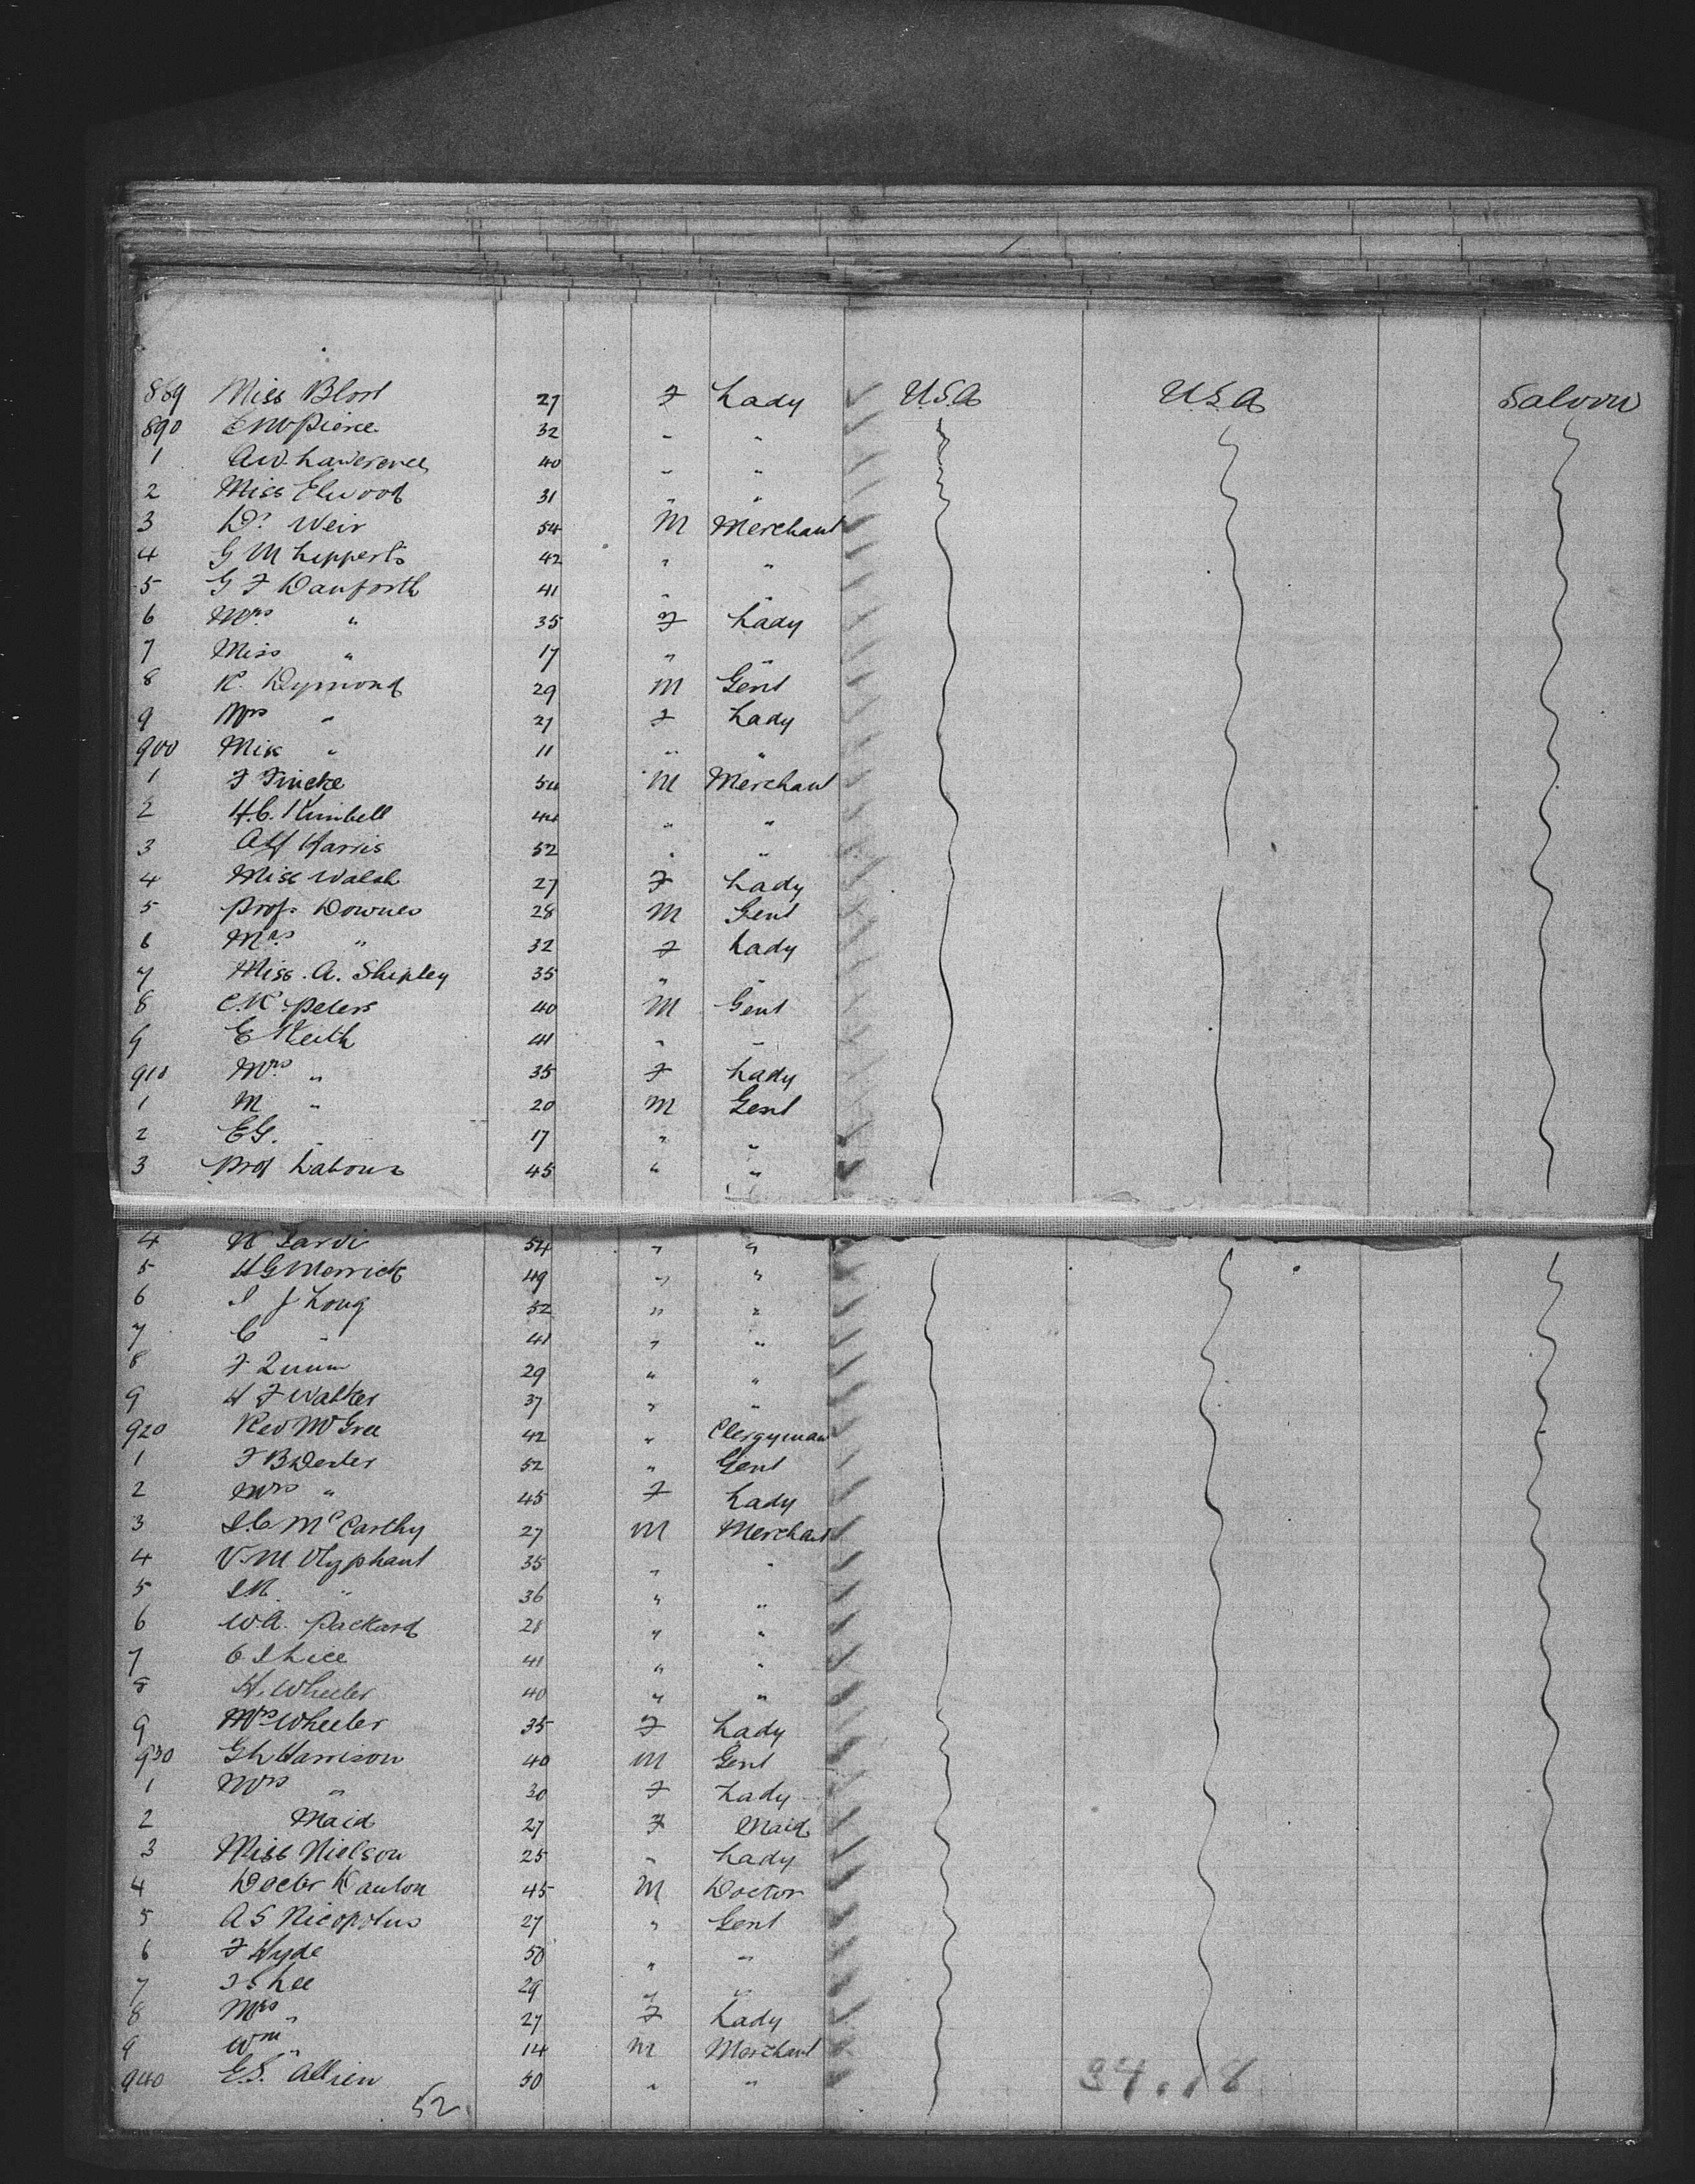 889 Miss Blost 27 F Lady USA USA Saloon
890 E W Pierce 32 " "
1 A.W. Lawerence 40 " "
2 Miss Elwood 31 " "
3 Dr. Weir 54 M Merchant
4 G M Lipperts 42 " "
5 G F Danforth 41 " "
6 Mrs " 35 F Lady
7 Miss " 17 " "
8 R. Dymond 29 M Gent
9 Mrs " 27 F Lady
900 Miss " 11 " "
1 F Fincke 54 M Merchant
2 H.C. Kimbell 44 " "
3 Alf Harris 52 " "
4 Miss Walsh 27 F Lady
5 Prof. Downes 28 M Gent
6 Mrs " 32 F Lady
7 Miss. A. Shipley 35 " "
8 C.K. Peters 40 M Gent
9 E Keith 44 " "
910 Mrs " 35 F Lady
1 M " 20 M Gent
2 EG. " 17 " "
3 Prof Labour 45 " "
4 54 " "
5 H G Merrick 49 " "
6 I J Long 52 " "
7 C " 41 " "
8 F Quinn 29 " "
9 H F Walker 37 " "
920 Rev McGree 42 " Clergyman
1 F B Dexter 52 " Gent
2 Mrs " 45 F Lady
3 D.C McCarthy 27 M Merchant
4 V.M. Olyphant 35 " "
5 " 36 " "
6 W.A. Packard 28 " "
7 41 " "
8 H. Wheeler 40 " "
9 Mrs Wheeler 35 F Lady
930 G L Harrison 40 M Gent
1 Mrs " 30 F Lady
2 Maid 27 F Maid
3 Miss Nielson 25 " Lady
4 Doctr Kanton 45 M Doctor
5 A S Nicopolus 27 " Gent
6 F Hyde 50 " "
7 J S Lee 29 " "
8 Mrs " 27 F Lady
9 Wm " 14 M Merchant
940 E.S. Allien 50 " "
52